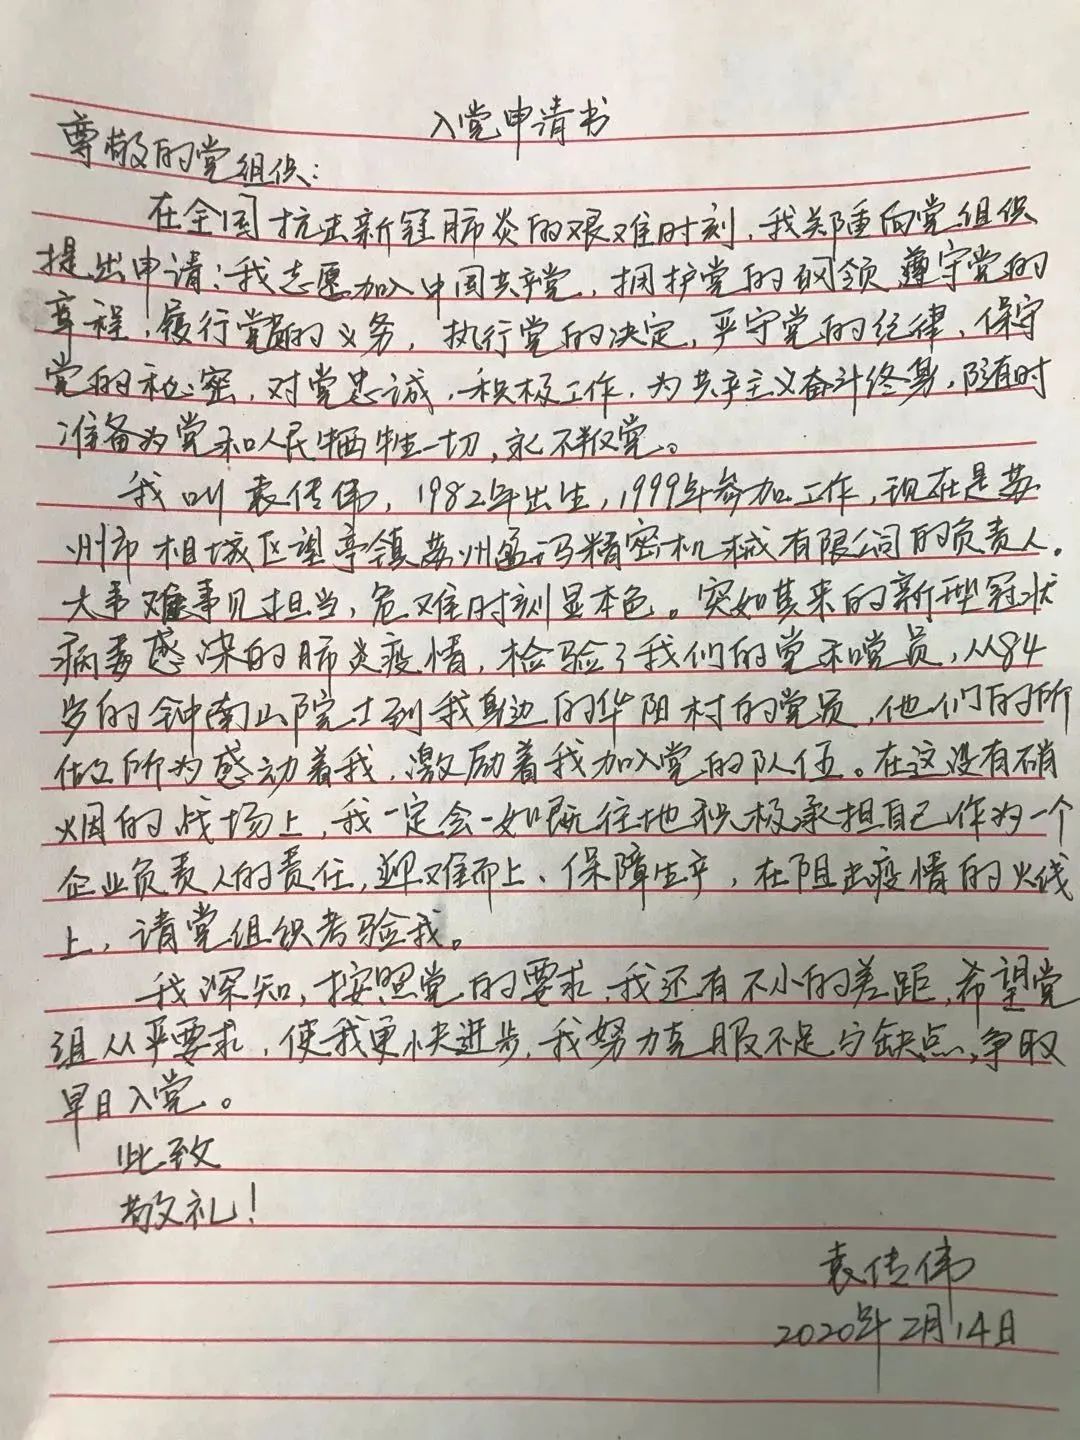 入党申请书
尊敬的党组织:
在全国抗击新冠肺炎的艰难时刻,我郑重向党组织
提出申请:我志愿加入中国共产党,拥护党的纲领,遵守党的
章程,履行党员的义务,执行党的决定,严守党的纪律,保守
党的秘密,对党忠诚,积极工作,为共产主义奋斗终身,随时
准备为党和人民牺牲一切,永不叛党。
我叫袁传伟,1982年出生,1999年参加工作,现在是苏
州市相城区望亭镇苏州孟冯精密机械有限公司的负责人。
大事难事见担当,危难时刻显本色。突如其来的新型冠状
病毒感染的肺炎疫情,检验了我们的党和党员,从84
岁的钟南山院士到我身边的华阳村的党员,他们的所
做所为感动着我,激励着我加入党的队伍。在这没有硝
烟的战场上,我一定会一如既往地积极承担自己作为一个
企业负责人的责任,迎难而上、保障生产,在阻击疫情的火线
上,请党组织考验我。
我深知,按照党的要求,我还有不小的差距,希望党
组从严要求,使我更快进步,我努力克服不足与缺点,争取
早日入党。
此致
敬礼!
袁传伟
2020年2月14日